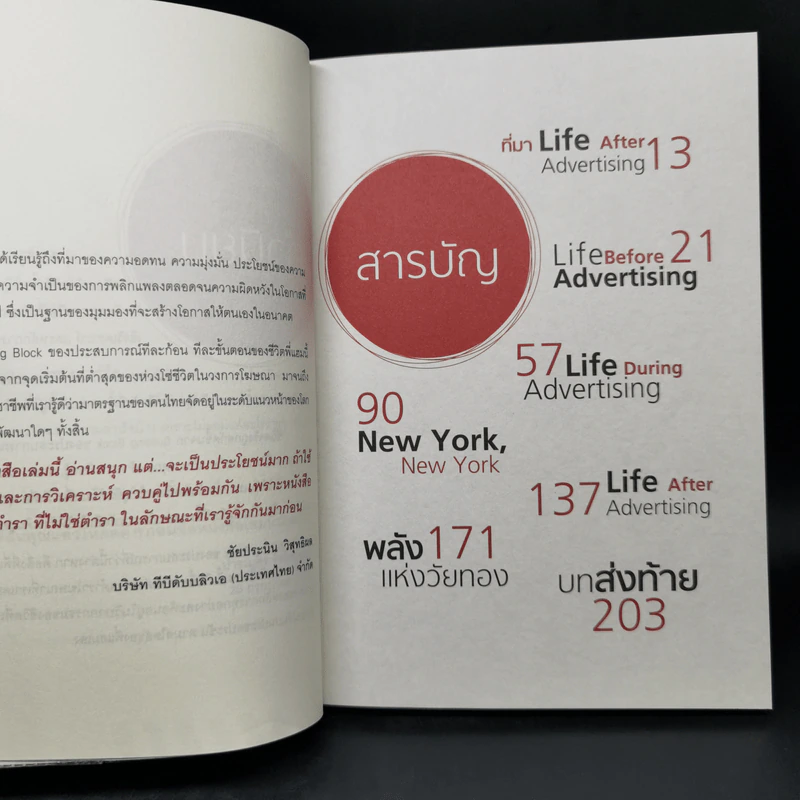 ด้เรียนรู้ถึงที่มาของความอดทน ความมุ่งมั่น ประโยชน์ของความ
ความจำเป็นของการพลิกแพลงตลอดจนความผิดหวังในโอกาสที่
ซึ่งเป็นฐานของมุมมองที่จะสร้างโอกาสให้ตนเองในอนาคต
g Block ของประสบการณ์ทีละก้อน ทีละขั้นตอนของชีวิตพี่แฮมนี้
จากจุดเริ่มต้นที่ต่ำสุดของห่วงโซ่ชีวิตในวงการโฆษณา มาจนถึง
าชีพที่เรารู้ดีว่ามาตรฐานของคนไทยจัดอยู่ในระดับแนวหน้าของโลก
พัฒนาใดๆ ทั้งสิ้น
สือเล่มนี้ อ่านสนุก แต่...จะเป็นประโยชน์มาก ถ้าใช้
และการวิเคราะห์ ควบคู่ไปพร้อมกัน เพราะหนังสือ
ตำรา ที่ไม่ใช่ตำรา ในลักษณะที่เรารู้จักกันมาก่อน
ชัยประนิน วิสุทธิผล
บริษัท ทีบีดับบลิวเอ (ประเทศไทย) จำกัด
สารบัญ
ที่มา Life After
Advertising 13
Life Before 21
Advertising
57 Life During
Advertising
90
New York,
New York
137 Life After
Advertising
พลัง 171
แห่งวัยทอง
บทส่งท้าย
203